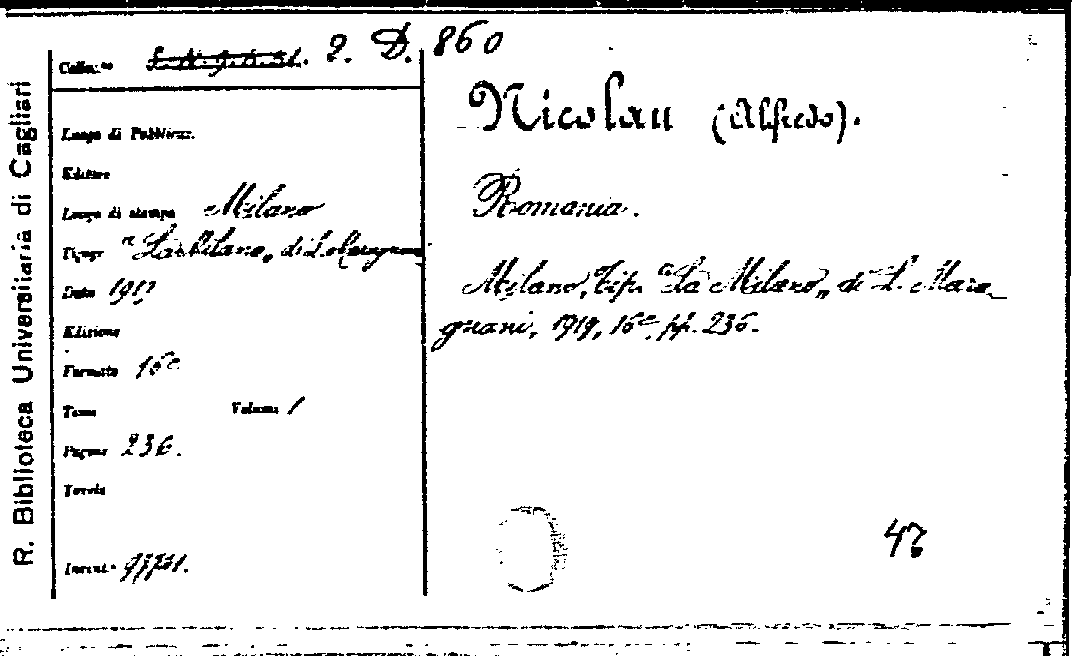 R. Biblioteca Universitaria di Cagliari
Colloc.ne 2. D. 860
Luogo di Pubblicaz.
Editore
Luogo di stampa Milano
Tipogr. "La Milano„ di L.
Data
Edizione
Formato 16º
Tomo Volume 1
Pagine 236.
Tavole
Invent.º
Nicolau (Alfredo).
Romania.
Milano, Tip. "La Milano„ di L. Mara-
gnani, 1919, 16º, pp. 236.